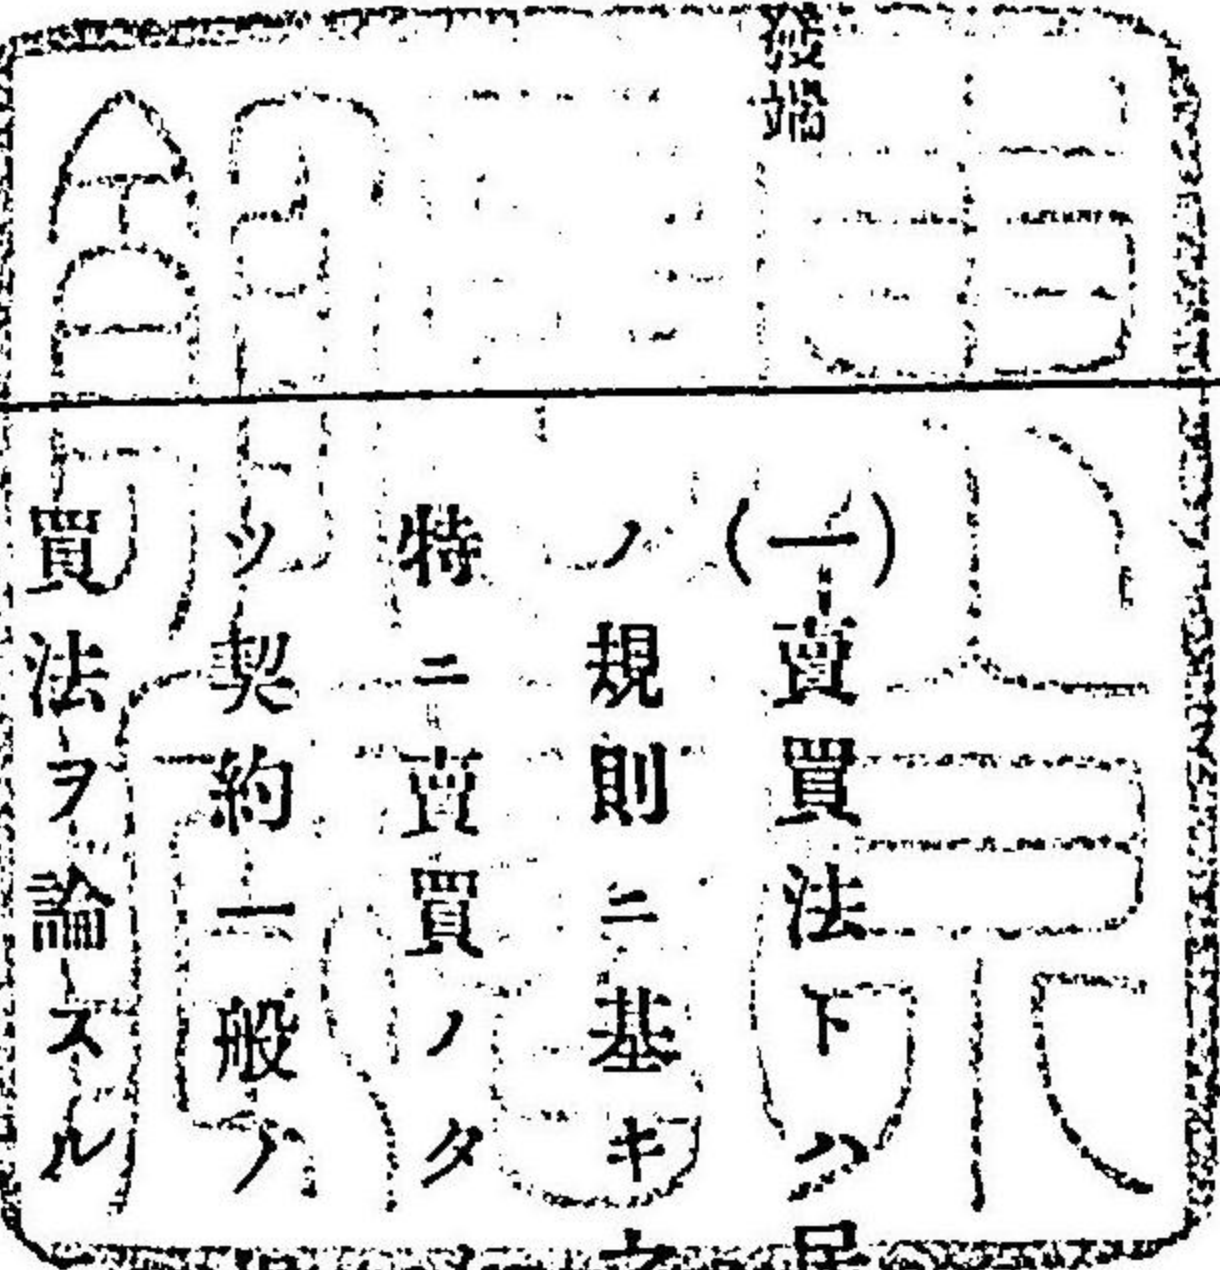 發端
(一)賣買法トハ
ノ規則ニ基キ
特ニ賣買ノタ
ツ契約一般ノ
買法ヲ論スル